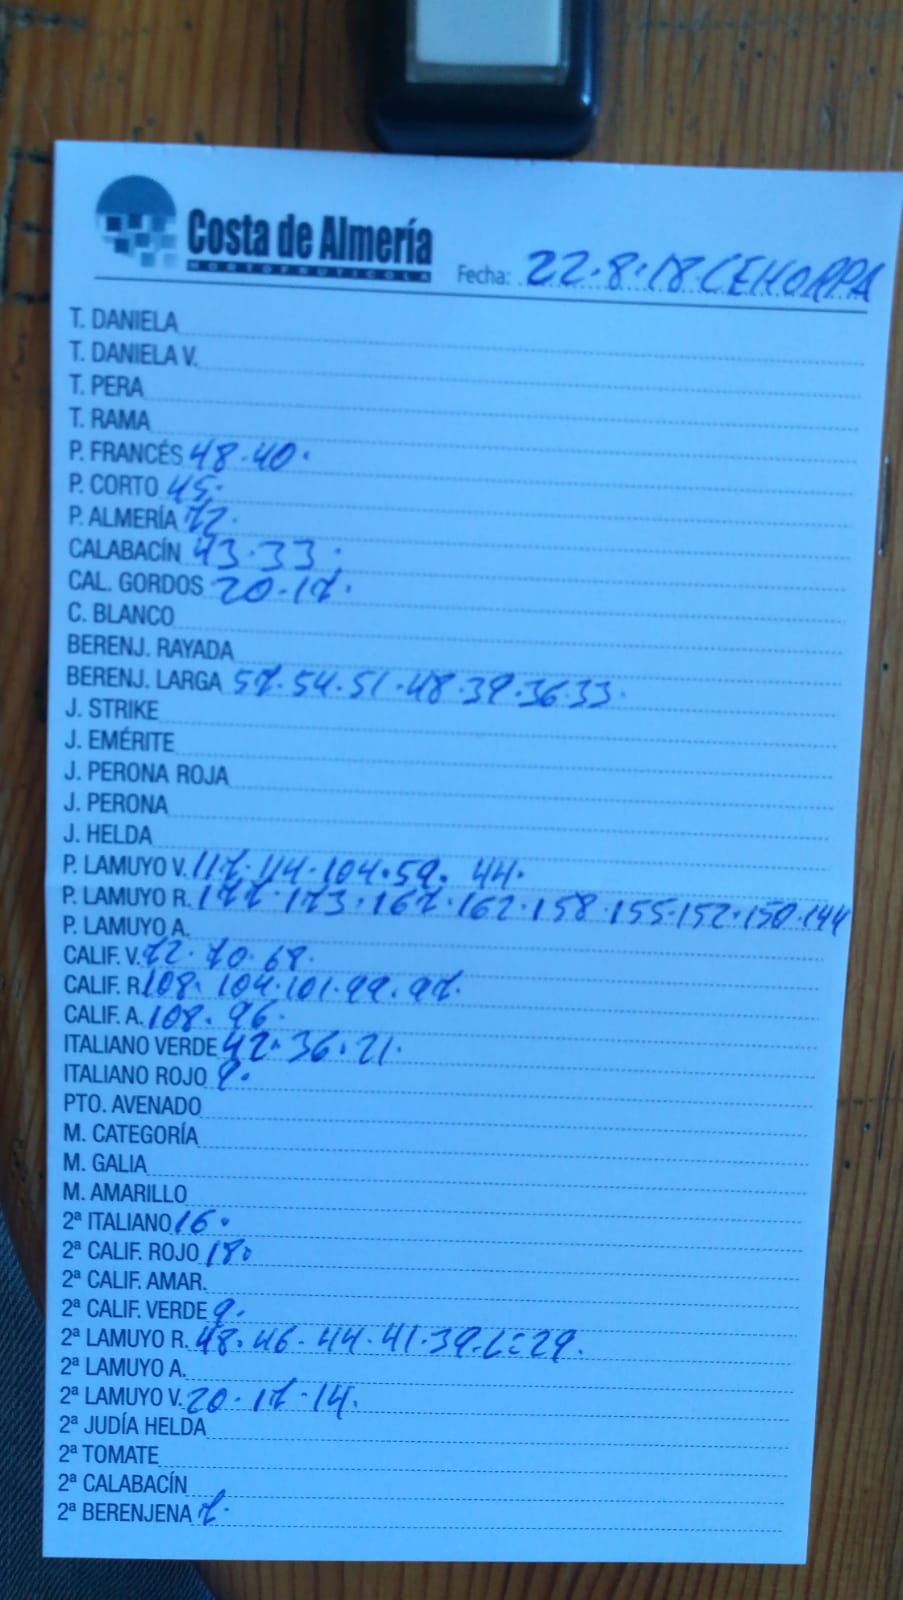 Costa de Almería
HORTOFRUTICOLA
Fecha: 22.8.18 CEHORPA
T. DANIELA
T. DANIELA V.
T. PERA
T. RAMA
P. FRANCÉS 48.40.
P. CORTO 45.
P. ALMERÍA 72.
CALABACÍN 43.33.
CAL. GORDOS 20.17.
C. BLANCO
BERENJ. RAYADA
BERENJ. LARGA 57.54.51.48.39.36.33.
J. STRIKE
J. EMÉRITE
J. PERONA ROJA
J. PERONA
J. HELDA
P. LAMUYO V. 117.114.104.59. 44.
P. LAMUYO R. 177.173.167.162.158.155.152.150.144
P. LAMUYO A.
CALIF. V. 72.70.68.
CALIF. R. 108.104.101.99.97.
CALIF. A. 108.96.
ITALIANO VERDE 42.36.21.
ITALIANO ROJO 9.
PTO. AVENADO
M. CATEGORÍA
M. GALIA
M. AMARILLO
2ª ITALIANO 16.
2ª CALIF. ROJO 18.
2ª CALIF. AMAR.
2ª CALIF. VERDE 9.
2ª LAMUYO R. 48.46.44.41.39. 29.
2ª LAMUYO A.
2ª LAMUYO V. 20.17.14.
2ª JUDÍA HELDA
2ª TOMATE
2ª CALABACÍN
2ª BERENJENA 7.